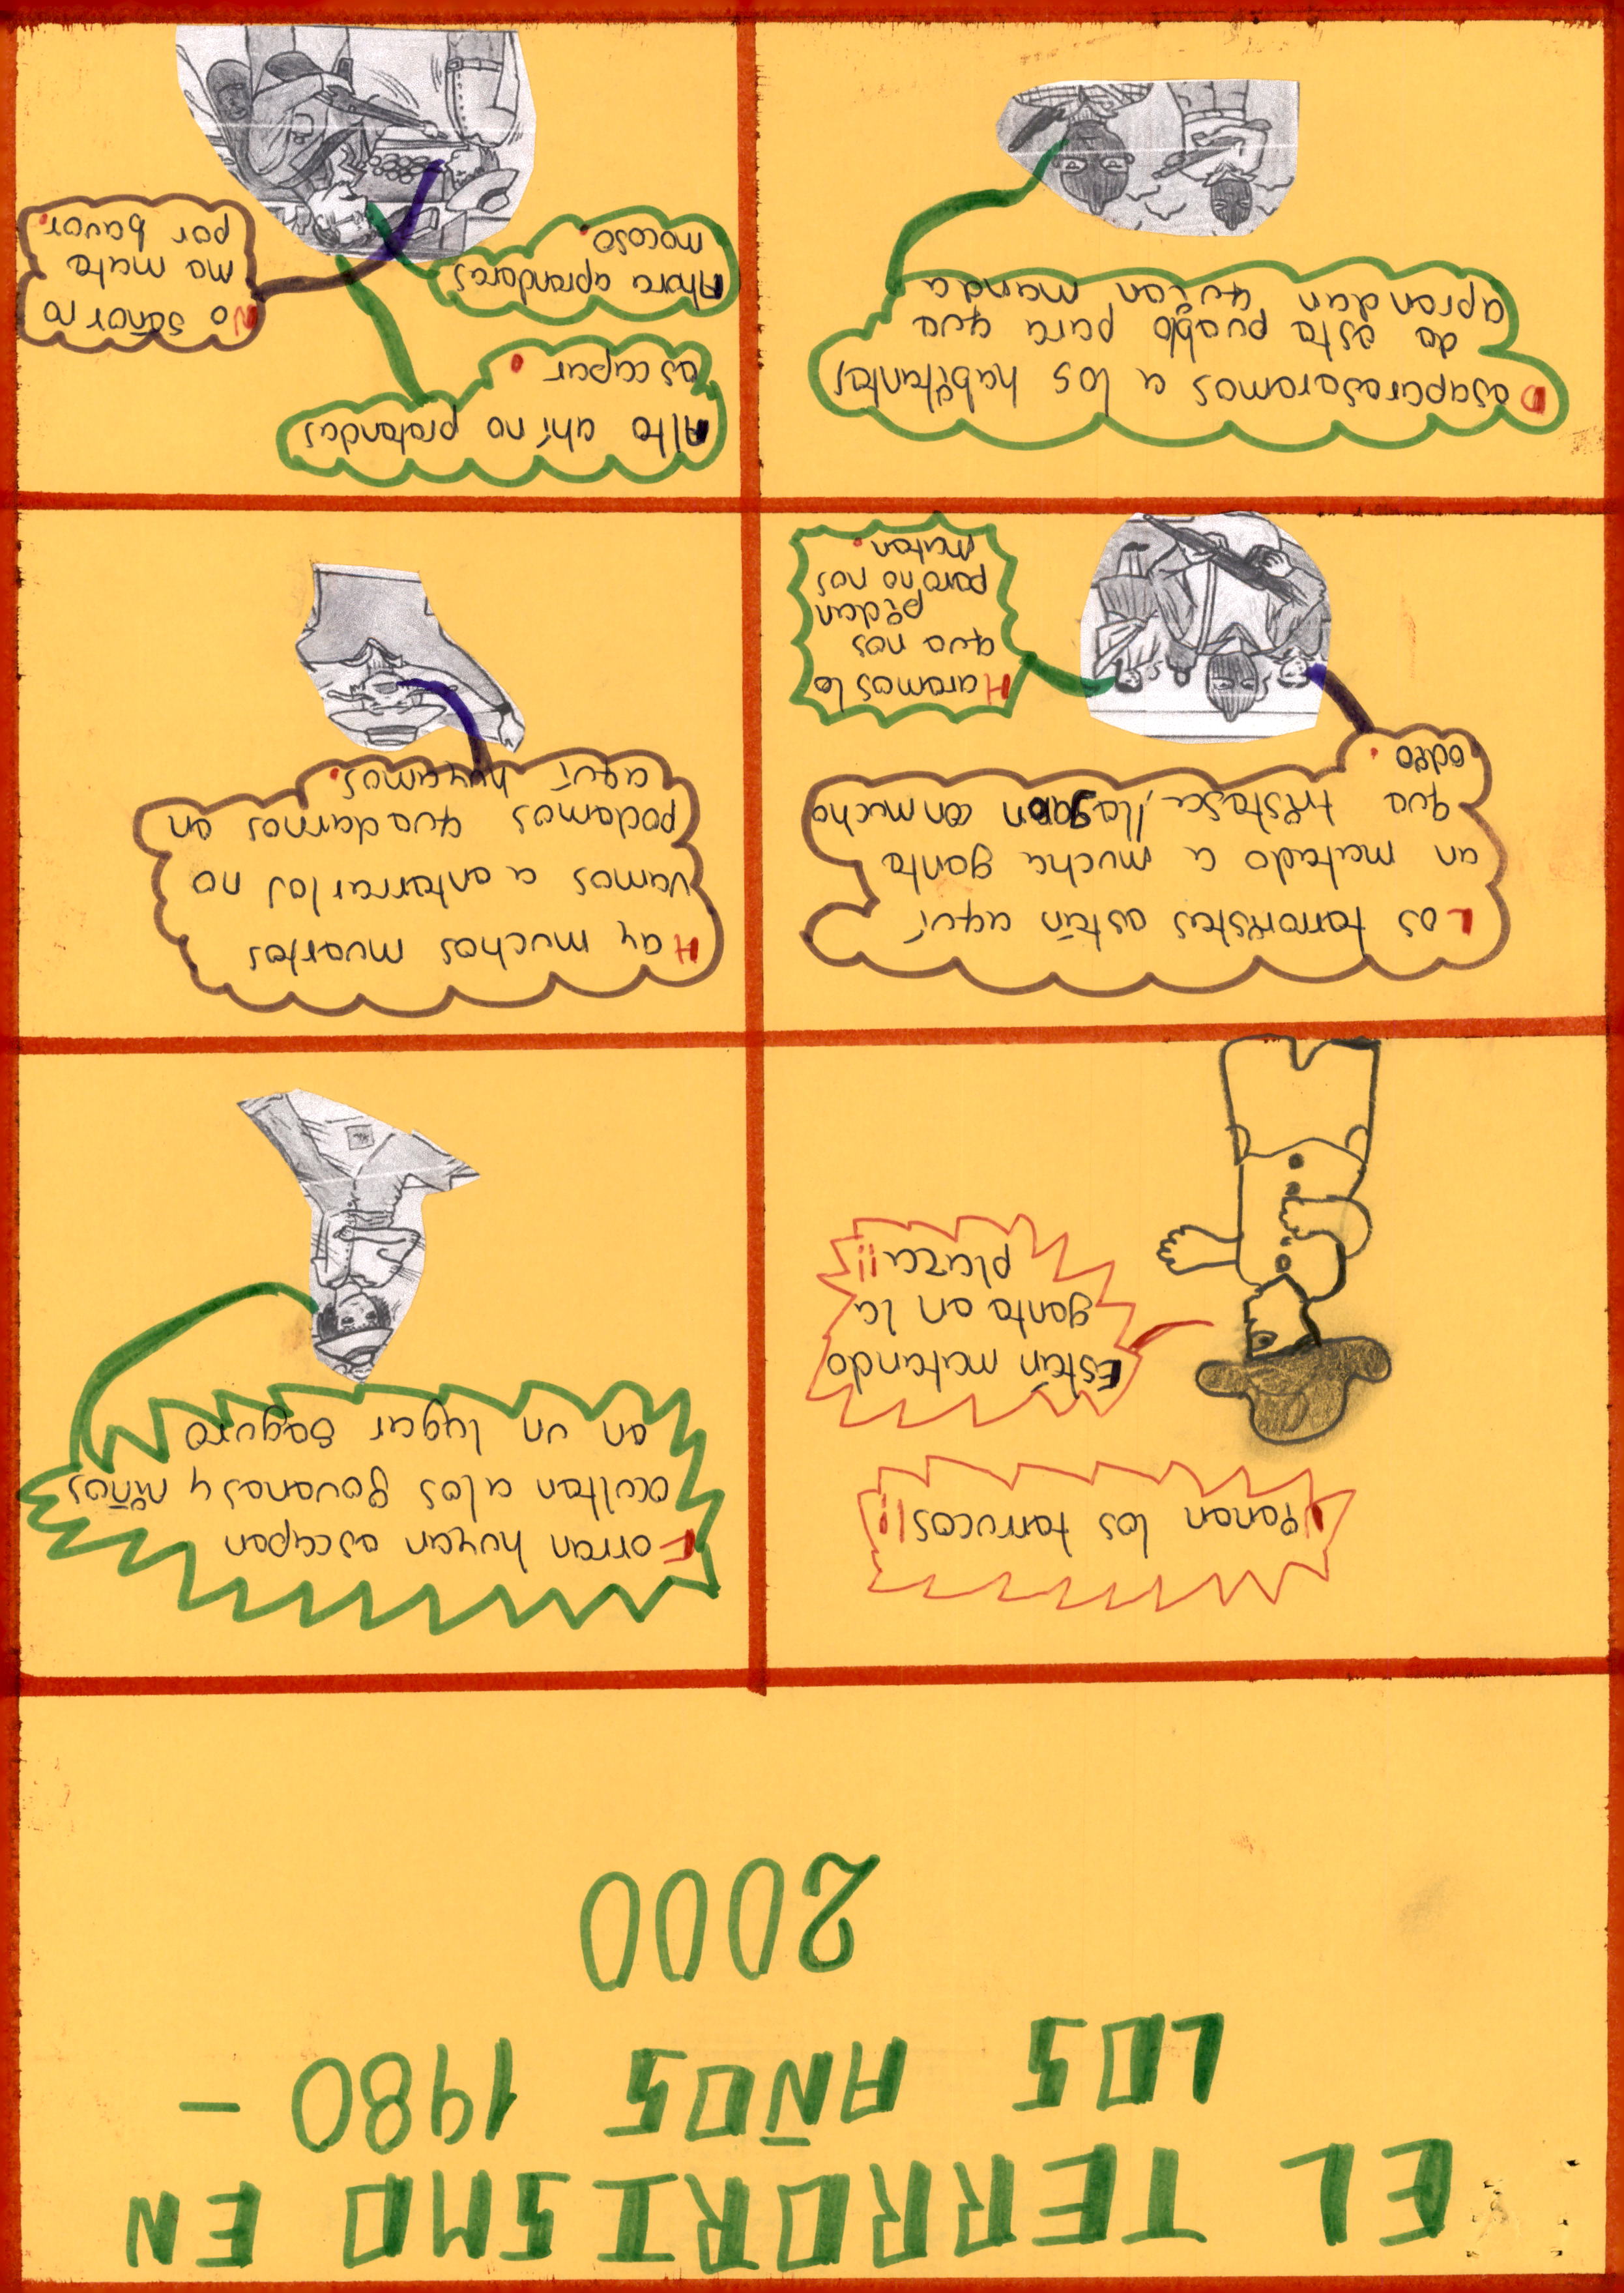 EL TERRORISMO EN
LOS AÑOS 1980 -
2000
los terrucos!!
Están matando
gente en la
plaza!!
Corran huyan escapen
ocultan a los jovenes y niños
en un lugar seguro
Los terroristas están aquí,
an matado a mucha gente
que tristesa, llegan con mucho
odio.
Haremos lo
que nos
pidan
pero no nos
maten.
Hay muchos muertos
vamos a enterrarlos no
podemos quedarnos en
aquí huyamos.
Desapareseremos a los habitantes
de este pueblo para que
aprendan quien manda
Alto ahí no pretendas
escapar.
Ahora aprenderas
mocoso.
No señor no
me mate
por favor.